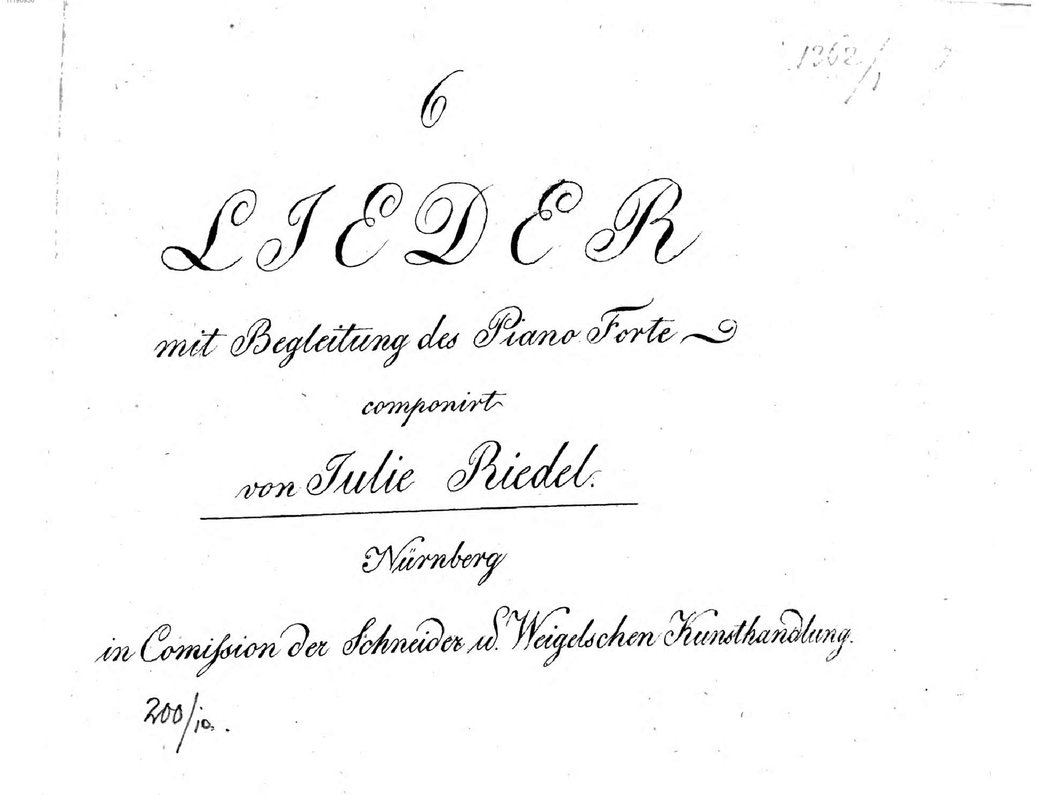 1362/1
6
LIEDER
mit Begleitung des Piano Forte
componirt
von Julie Riedel.
Nürnberg
in Comiſsion der Schneider u. Weigelschen Kunsthandlung.
200/10.